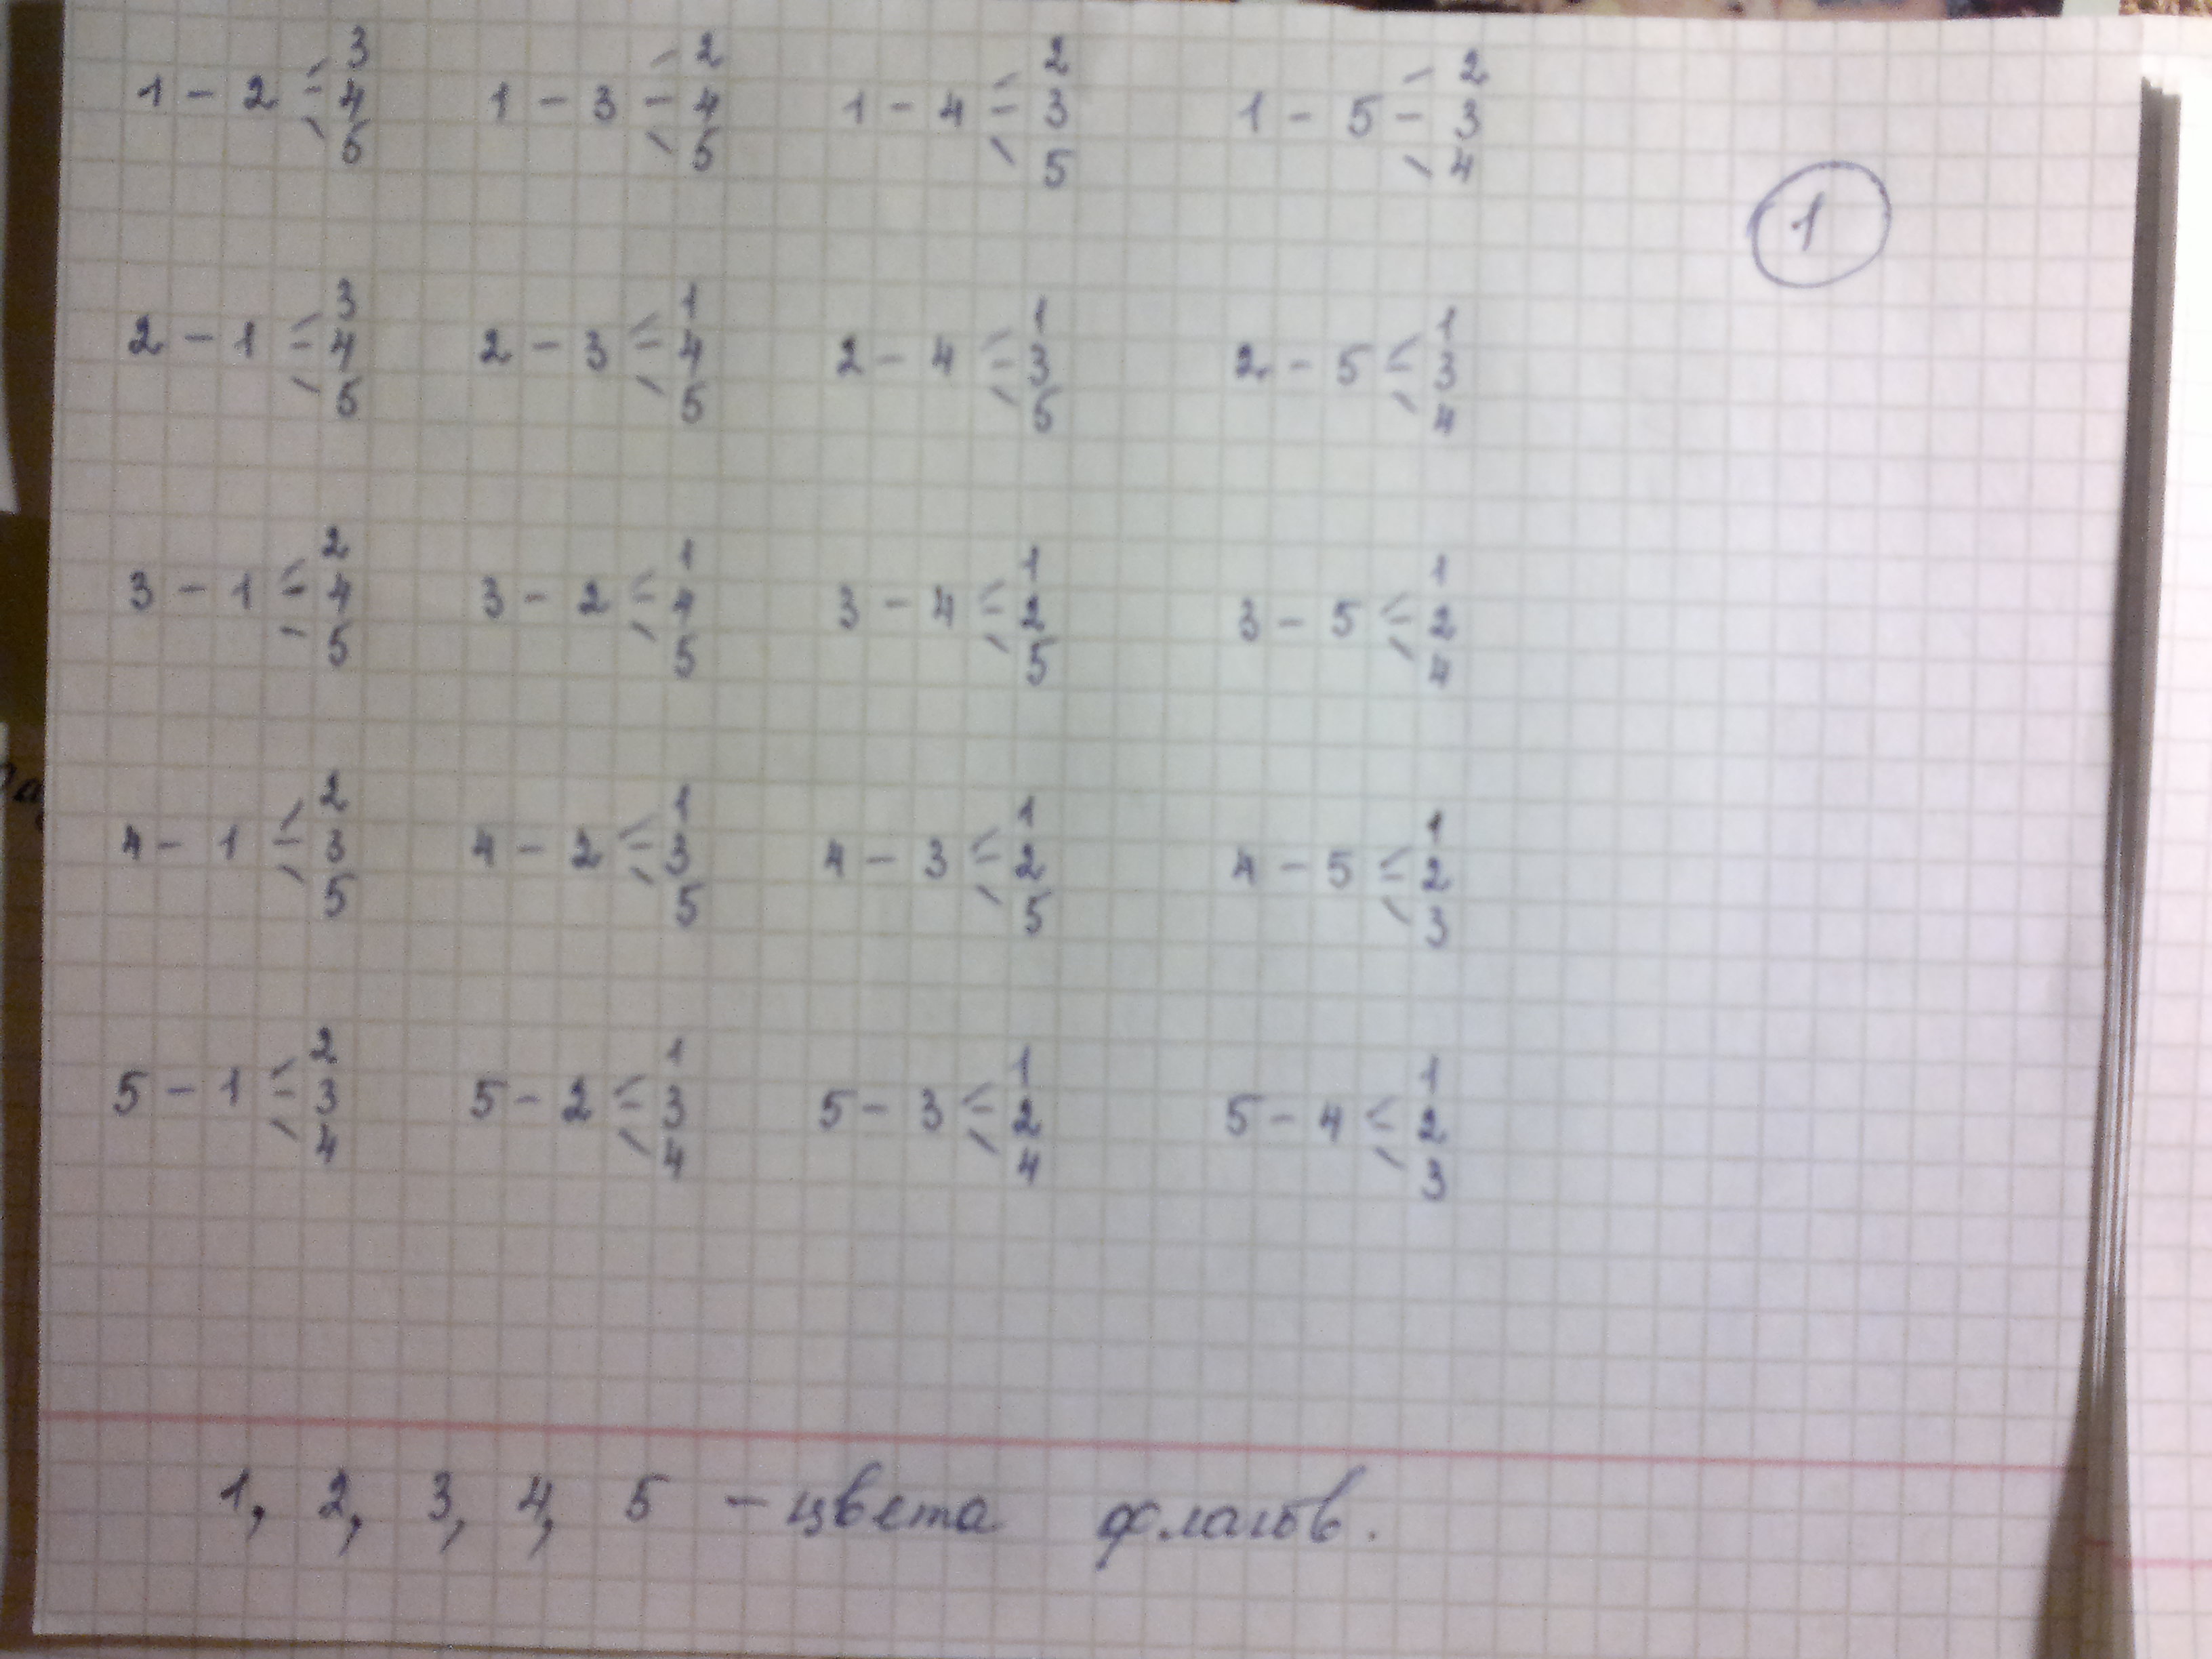 3 2 2 2
1 - 2 - 4 1 - 3 - 4 1 - 4 - 3 1 - 5 - 3
5 5 5 4
1
3 1 1 1
2 - 1 - 4 2 - 3 - 4 2 - 4 - 3 2 - 5 - 3
5 5 5 4
2 1 1 1
3 - 1 - 4 3 - 2 - 4 3 - 4 - 2 3 - 5 - 2
5 5 5 4
2 1 1 1
4 - 1 - 3 4 - 2 - 3 4 - 3 - 2 4 - 5 - 2
5 5 5 3
2 1 1 1
5 - 1 - 3 5 - 2 - 3 5 - 3 - 2 5 - 4 - 2
4 4 4 3
1, 2, 3, 4, 5 - цвета флагов.